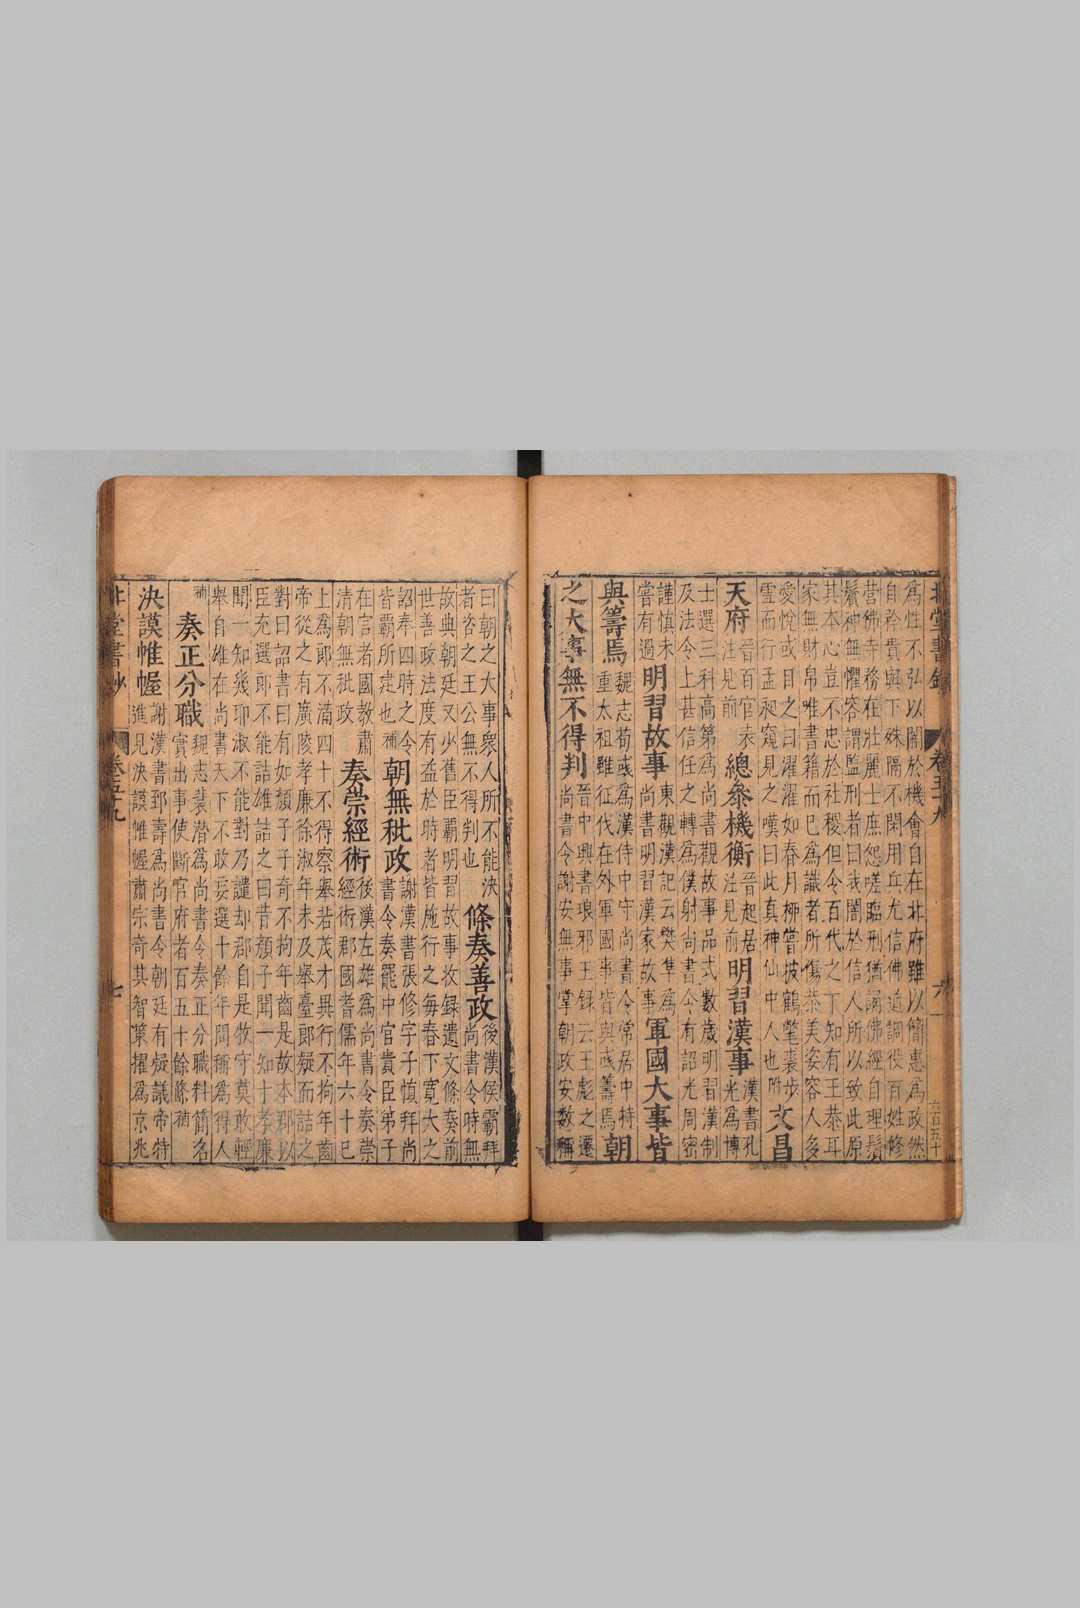 北堂書鈔 卷五十九 六
爲性不弘以闇於機會自在北府雖以簡惠爲政然
自矜貴與下殊隔不閑用兵尤信佛道調役百姓修
營佛寺務在壯麗士庶怨嗟臨刑猶誦佛經自理鬚
鬢神無懼容謂監刑者曰我闇於信人所以致此原
其本心豈不忠於社稷但令百代之下知有王恭耳
家無財帛唯書籍而已爲識者所傷恭美姿容人多
愛悅或目之曰濯濯如春月柳嘗披鶴氅裘步
雪而行孟昶窺見之嘆曰此真神仙中人也 文昌
天府 晉百官表注見前 總參機衡 晉起居注見前 明習漢事 漢書孔光爲博
士選三科高第爲尚書觀故事品式數歲明習漢制
及法令上甚信任之轉爲僕射尚書令有詔光周密
謹慎未嘗有過 明習故事 東觀漢記云樊準爲尚書明習漢家故事 軍國大事皆
與籌焉 魏志荀彧爲漢侍中守尚書令常居中持重太祖雖征伐在外軍國事皆與彧籌焉 朝
之大事無不得判 晉中興書琅邪王錄云王彪之遷尚書令謝安無事掌朝政安數稱
曰朝之大事衆人所不能決
者咨之王公無不得判也 條奏善政 後漢侯霸拜尚書令時無
故典朝廷又少舊臣霸明習故事收錄遺文條奏前
世善政法度有益於時者皆施行之每春下寬大之
詔奉四時之令皆霸所定也 朝無秕政 謝漢書張修字子慎拜尚書令奏罷中官貴臣弟子
在言者國教肅清朝無秕政 奏崇經術 後漢左雄爲尚書令奏崇經術郡國耆儒年六十已
上爲郎不滿四十不得察舉若茂才異行不拘年齒
帝從之有廣陵孝廉徐淑年未及舉臺郎疑而詰之
對曰詔書曰有如顏子子奇不拘年齒是故本郡以
臣充選郎不能詰雄詰之曰昔顏子聞一知十孝廉
聞一知幾耶淑不能對乃譴却郡自是牧守莫敢輕
舉自雄在尚書天下不敢妄選十餘年間稱爲得人
補 奏正分職 魏志裴潛爲尚書令奏正分職料簡名實出事使斷官府者百五十餘條補
決謨帷幄 謝漢書郅壽爲尚書令朝廷有疑議帝特進見決謨帷幄肅宗奇其智策擢爲京兆
北堂書鈔 卷五十九 七